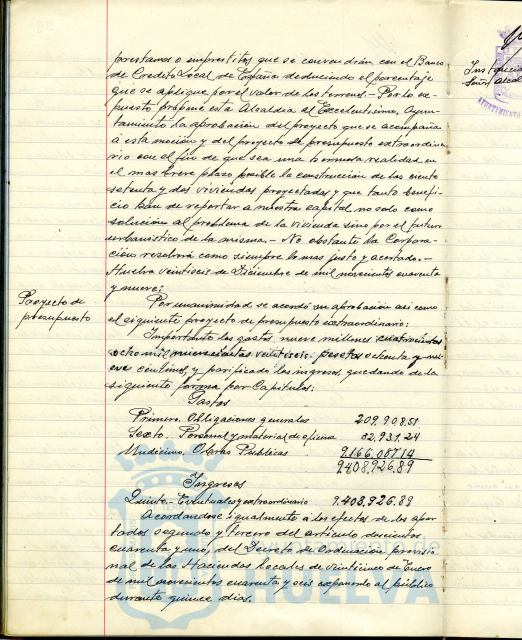 prestamos o emprestitos que se convendrán con el Banco
de Credito Local de España deduciendo el porcentaje
que se aplique por el valor de los terrenos.- Por lo ex-
puesto propone esta Alcaldia al Excelentisimo, Ayun-
tamiento la aprobación del proyecto que se acompaña
á esta moción y del proyecto de presupuesto extraordina-
rio con el fin de que sea una hermosa realidad en
el mas breve plazo posible la construcción de las ciento
setenta y dos viviendas proyectadas y que tanto benefi-
cio han de reportar a nuestra capital no solo como
solución al problema de la vivienda sino por el futuro
urbanistico de la misma.- No obstante la Corpora-
cion resolverá como siempre lo mas justo y acertado.-
Huelva veintiseis de Diciembre de mil novecientos cuarenta
y nueve:
Proyecto de
presupuesto
Por unanimidad se acordó su aprobación asi como
el siguiente proyecto de presupuesto extraordinario:
Importante los gastos nueve millones cuatrocientas
ocho mil novecientas veintiseis pesetas ochenta y nu-
eve centimos, y parificado los ingresos, quedando de la
siguiente forma por Capitulos:
Gastos
Primero. Obligaciones generales 209.908.51
Sexto. Personal y material de oficina 32.931.24
Undecimo. Obras Publicas 9.166.087.14
9408,926.89
Ingresos
Quinto.- Eventuales y extraordinario 9.408.926.89
Acordandose igualmente á los efectos de los apar-
tados segundo y tercero del articulo doscientos
cuarenta y uno, del Decreto de Ordenacion provisio-
nal de las Haciendas Locales de veinticinco de Enero
de mil novecientos cuarenta y seis exponerlo al público
durante quince dias.
Señor Alcal
AYUNTAMIENTO
Ayuntamiento de
HUELVA